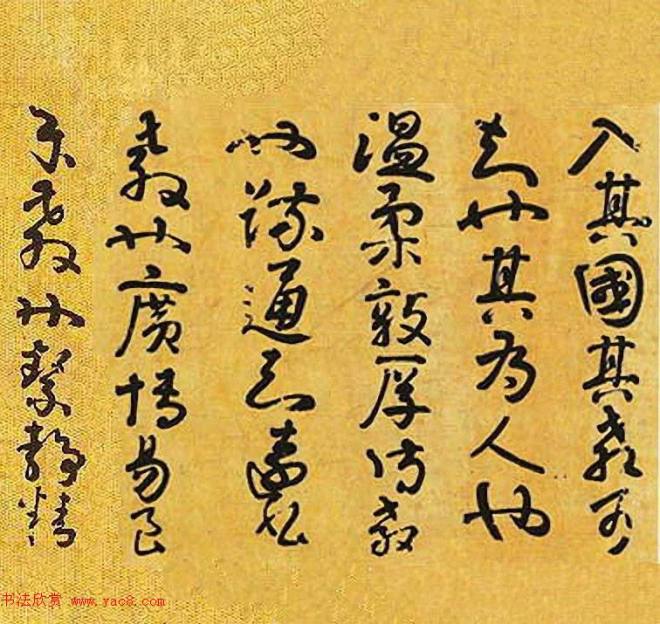 入其國其教可
知也其為人也
温柔敦厚詩教
也疏通知遠書
教也廣博易良
樂教也絜静精
书法欣赏 www.yac8.com